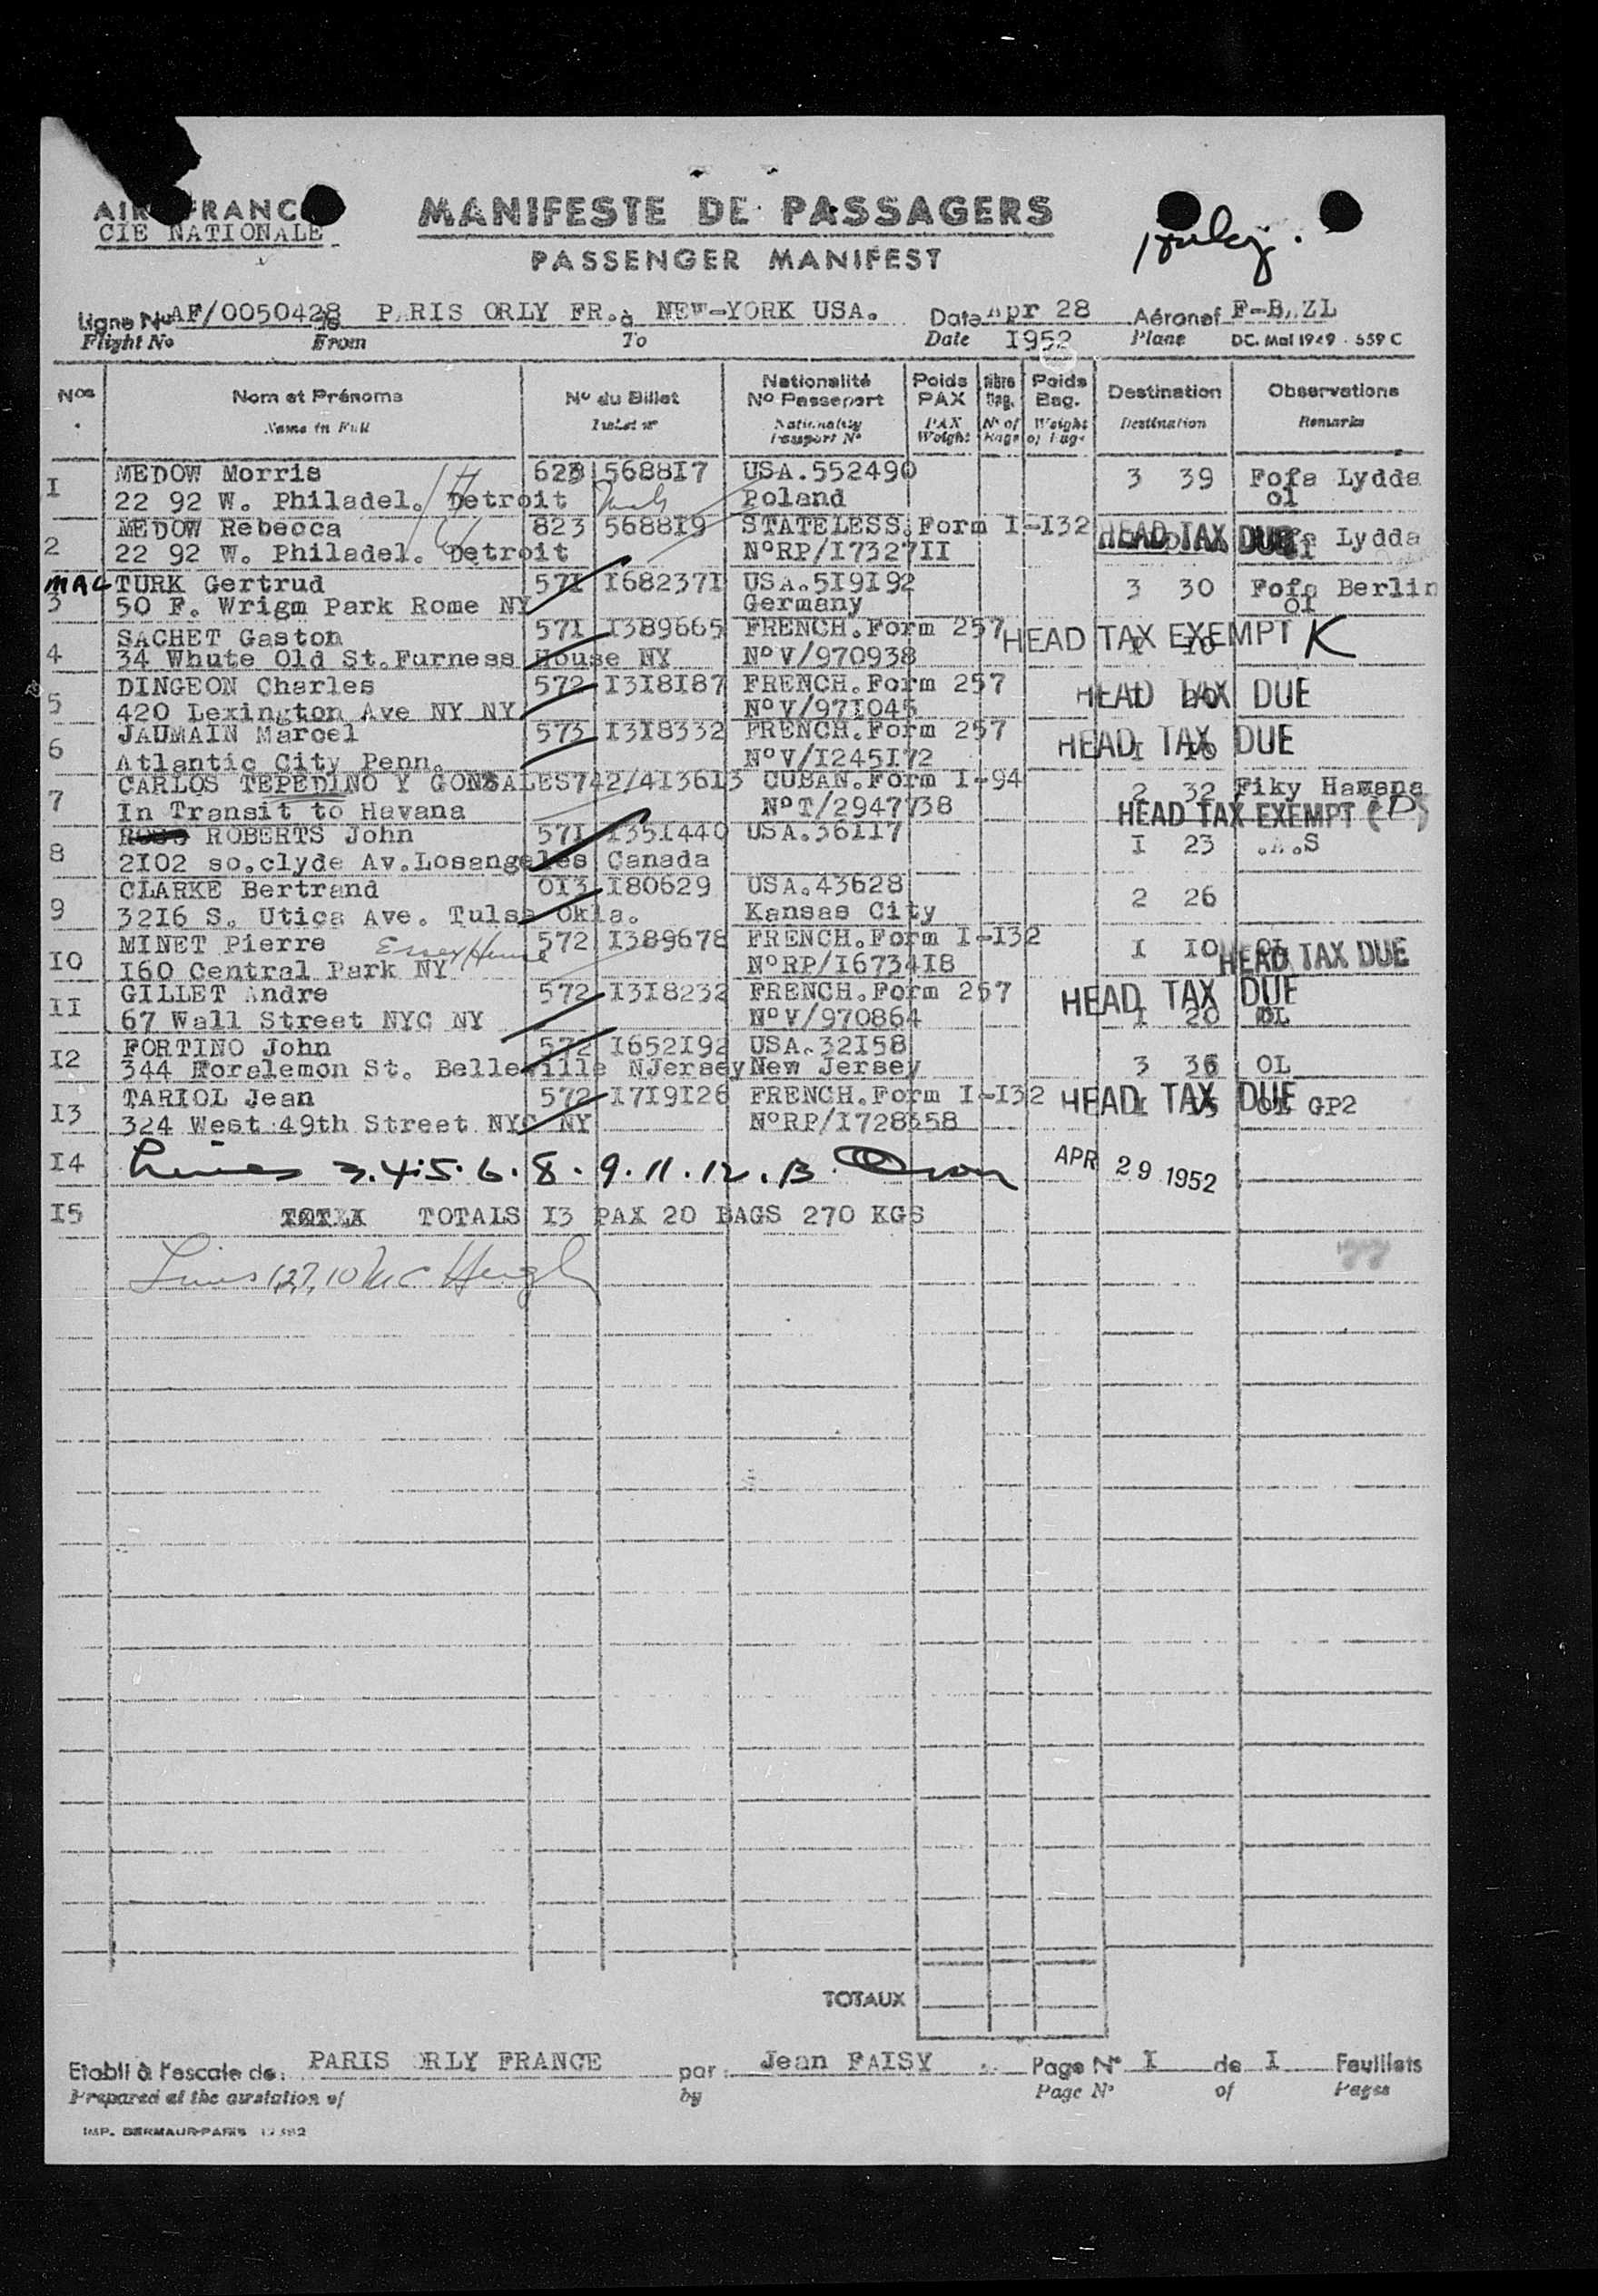 AIR FRANCE
CIE NATIONALE
MANIFESTE DE PASSAGERS
PASSENGER MANIFEST
Ligne No AF/0050428 de PARIS ORLY FR. à NEW-YORK USA. Date Apr 28 Aéronef
Flight No From To Date 1952 Plane DC. Mai 1949 - 559 C
Nos Nom et Prénoms No du Billet Nationalité No Passeport Poids PAX Nbre Bag. Poids Bag. Destination Observations
Name in Full Ticket No Nationality Passport No PAX Weight No of Bags Weight of Bags Destination Remarks
I MEDOW Morris 623 5688I7 USA.552490 3 39 Fofa Lydda
22 92 W. Philadel. Detroit Poland ol
2 MEDOW Rebecca 823 5688I9 STATELESS.Form I-I32 HEAD TAX DUE Lydda
22 92 W. Philadel. Detroit N°RP/I7327II
MAC TURK Gertrud 57I I68237I USA.5I9I92 3 30 Fofa Berlin
3 50 F. Wrigm Park Rome NY Germany ol
4 SACHET Gaston 57I I389665 FRENCH.Form 257 HEAD TAX EXEMPT K
34 Whute Old St.Furness House NY N°V/970938
5 DINGEON Charles 572 I3I8I87 FRENCH.Form 257 HEAD TAX DUE
420 Lexington Ave NY NY N°V/97I045
6 JAUMAIN Marcel 573 I3I8332 FRENCH.Form 257 HEAD TAX DUE
Atlantic City Penn. N°V/I245I72
7 CARLOS TEPEDINO Y GONSALES 742/4I36I3 CUBAN.Form I-94 2 32 Fiky Havana
In Transit to Havana N°T/2947738 HEAD TAX EXEMPT (D)
8 ROBERTS John 57I I35I440 USA.36II7 I 23
2I02 so.clyde Av.Losangeles Canada
9 CLARKE Bertrand 0I3 I80629 USA.43628 2 26
32I6 S. Utica Ave. Tulsa Okla. Kansas City
I0 MINET Pierre Essex House 572 I389678 FRENCH.Form I-I32 I I0 OL HEAD TAX DUE
I60 Central Park NY N°RP/I6734I8
II GILLET Andre 572 I3I8232 FRENCH.Form 257 HEAD TAX DUE
67 Wall Street NYC NY N°V/970864 I 20 OL
I2 FORTINO John 572 I652I92 USA.32I58 3 36 OL
344 Foralemon St. Belleville NJersey New Jersey
I3 TARIOL Jean 572 I7I9I26 FRENCH.Form I-I32 HEAD TAX DUE GP2
324 West 49th Street NYC NY N°RP/I728658
I4 Lines 3.4.5.6.8.9.11.12.13. APR 29 1952
I5 TOTALS I3 PAX 20 BAGS 270 KGS
Lines 1,2,7,10
TOTAUX
Etabli à l'escale de: PARIS ORLY FRANCE par: Jean FAISY Page N° I de I Feuillets
Prepared at the airstation of by Page N° of Pages
IMP. DERMAUR-PARIS